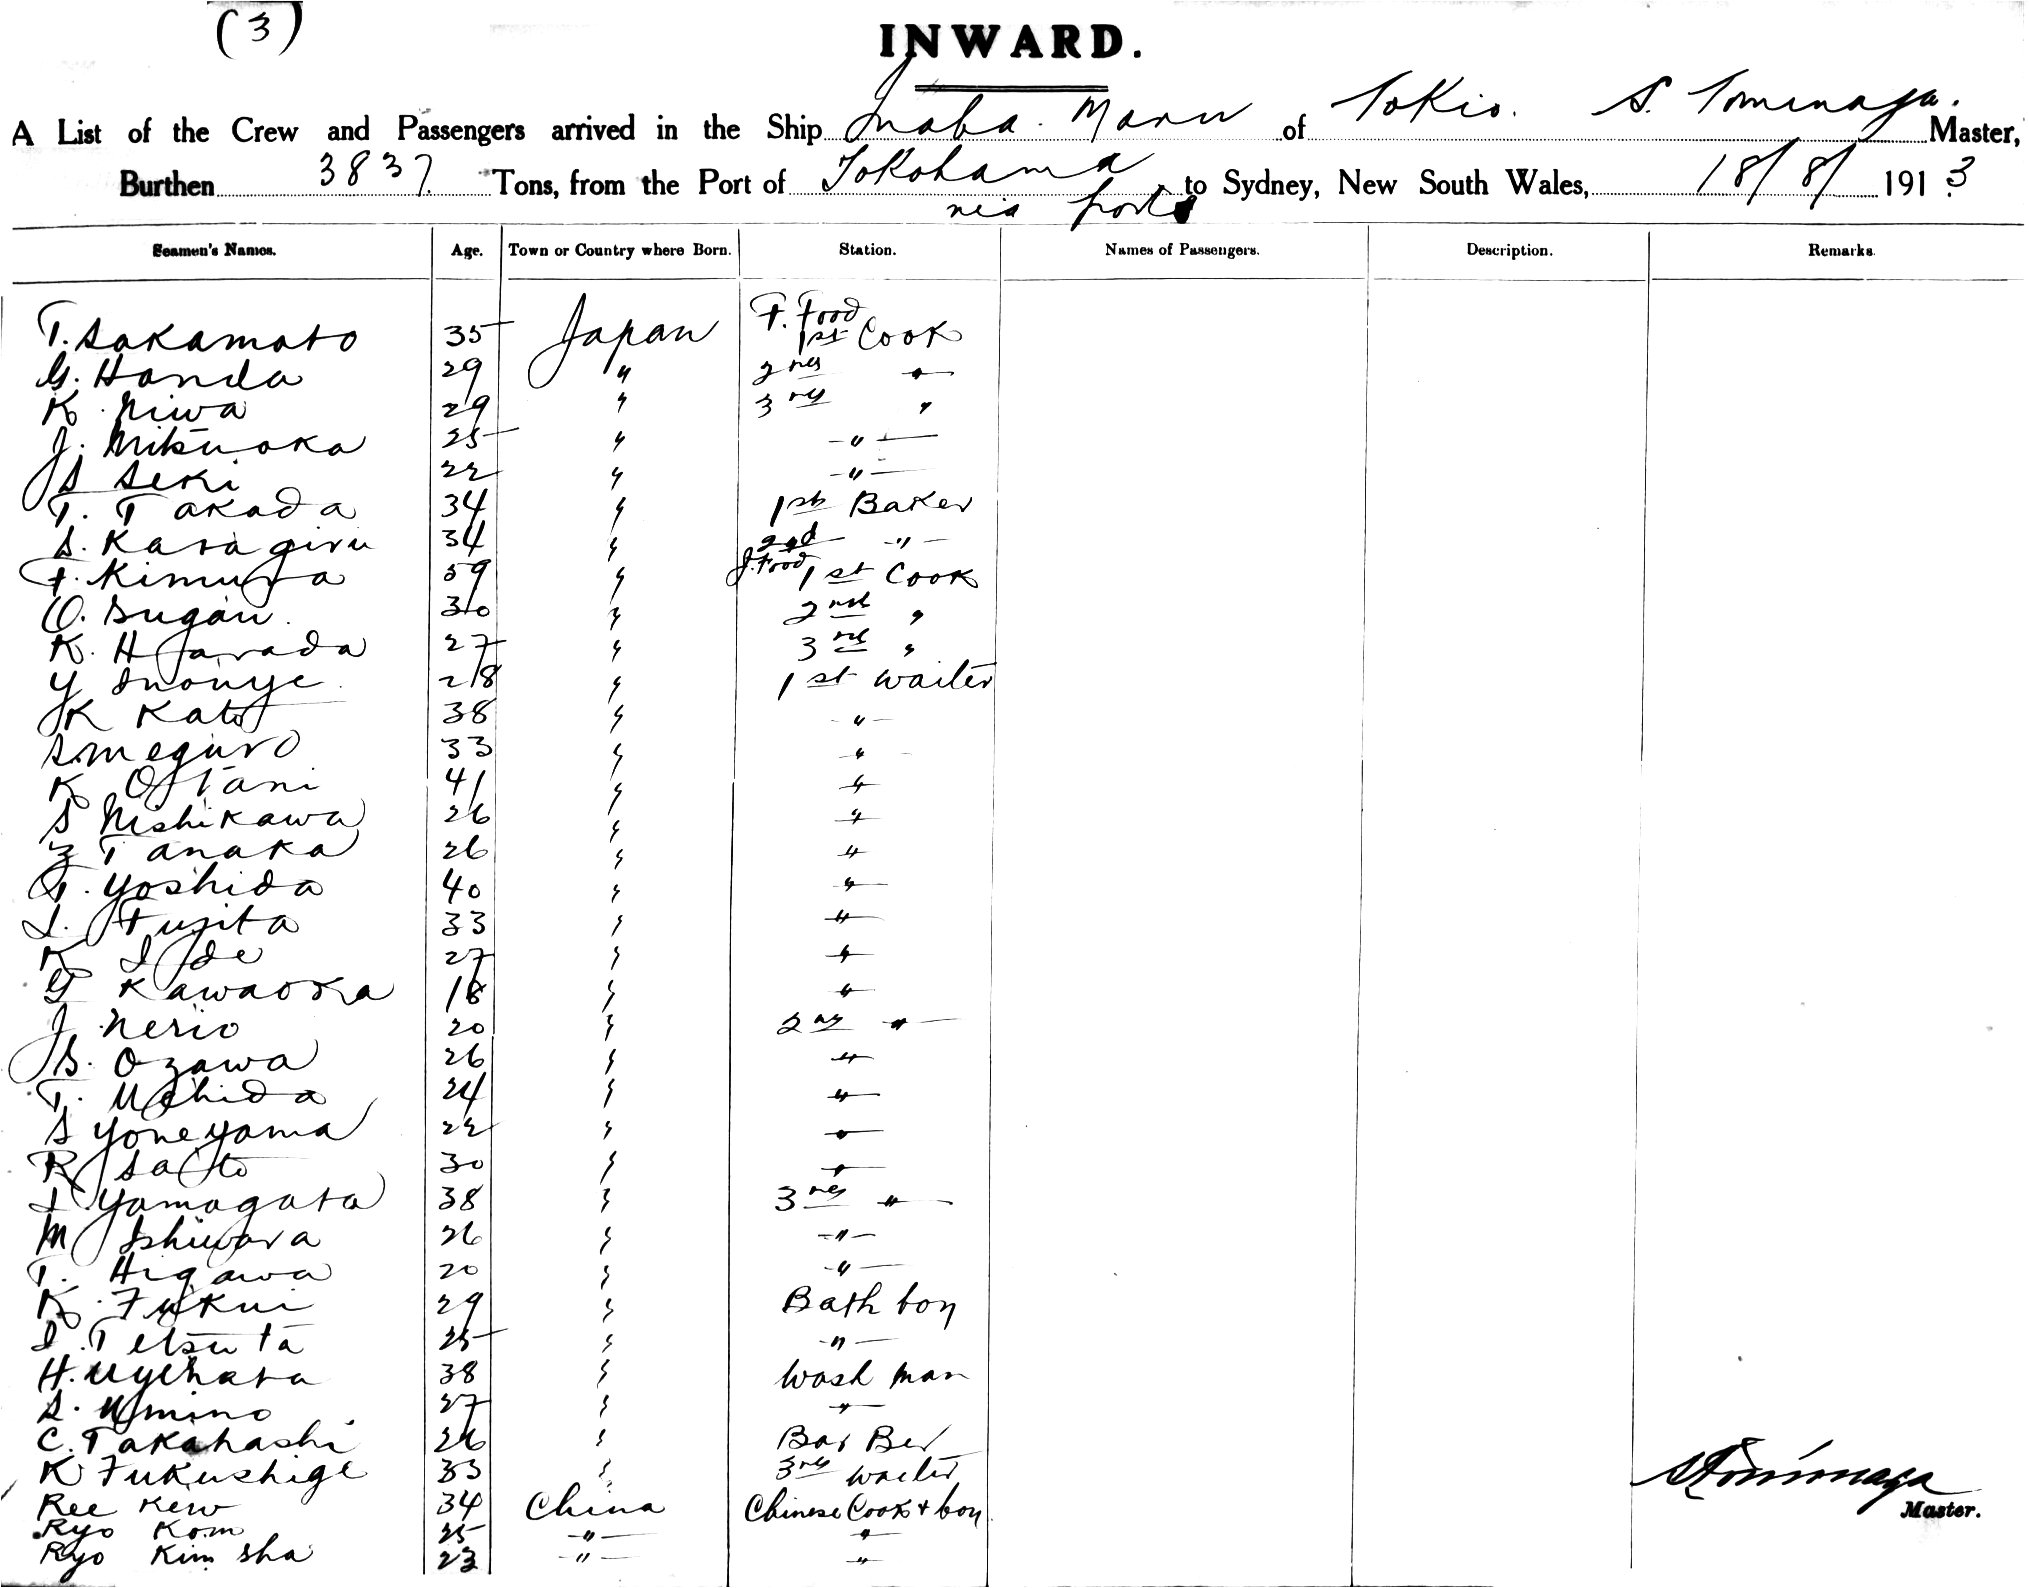 (3)
INWARD.
A List of the Crew and Passengers arrived in the Ship Inaba Maru of Tokio. S. Tominaga. Master,
Burthen 3837 Tons, from the Port of Yokohama to Sydney, New South Wales, 18/8/ 1913
via ports
Seamen's Names. Age. Town or Country where Born. Station. Names of Passengers. Description. Remarks.
F. Food
T. Sakamoto 35 Japan 1st Cook
G. Honda 29 " 2nd "
K. Niwa 29 " 3rd "
J. Mitsuoka 25 " "
S Seki 22 " "
T. Takada 34 " 1st Baker
S. Katagiri 34 " 2nd "
J. Food
F. Kimura 39 " 1st Cook
O. Sugau 30 " 2nd "
K. Harada 27 " 3rd "
Y Inouye 28 " 1st Waiter
K Kato 38 " "
S. Meguro 33 " "
K Otani 41 " "
S Nishikawa 26 " "
Z Tanaka 26 " "
T. Yoshida 40 " "
I. Fujita 33 " "
K Ide 27 " "
T Kawaoka 18 " "
J Nerio 20 " 2nd "
S. Ozawa 26 " "
T. Uchida 24 " "
S Yoneyama 22 " "
R Saito 30 " "
I Yamagata 38 " 3rd "
M Ishiwara 26 " "
T. Higawa 20 " "
K. Fukui 29 " Bath boy
I. Tetsuta 25 " "
H. Uyehara 38 " Wash man
S. Umino 27 " "
C. Takahashi 26 " Bar Ber
K Fukushige 33 " 3rd Waiter
STominaga
Ree Kew 34 China Chinese Cook + boy
Master.
Ryo Kom 25 " "
Ryo Kim Sha 23 " "